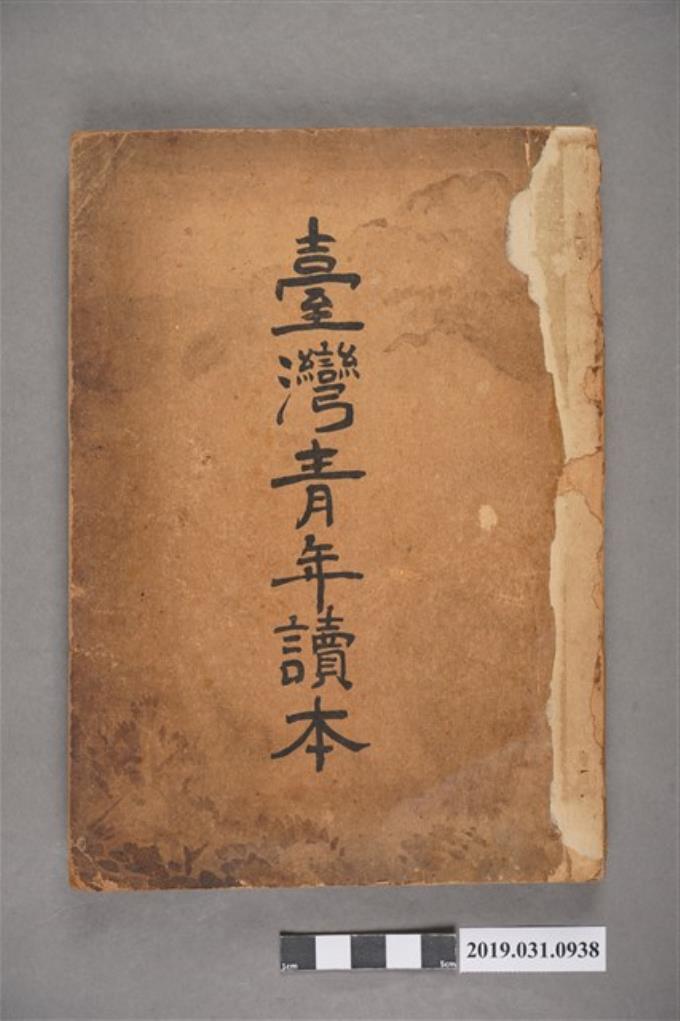 臺灣青年讀本
1cm
5cm
2019.031.0938